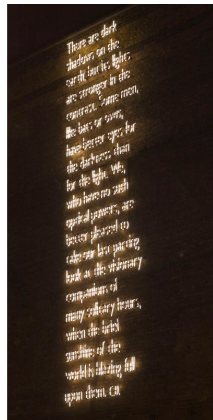 There are dark
shadows on the
earth, but its lights
are stronger in the
contrast. Some men,
like bats or owls,
have better eyes for
the darkness than
for the light. We,
who have no such
optical powers, are
better pleased to
take our last parting
look at the visionary
companions of
many solitary hours,
when the brief
sunshine of the
world is blazing full
upon them.